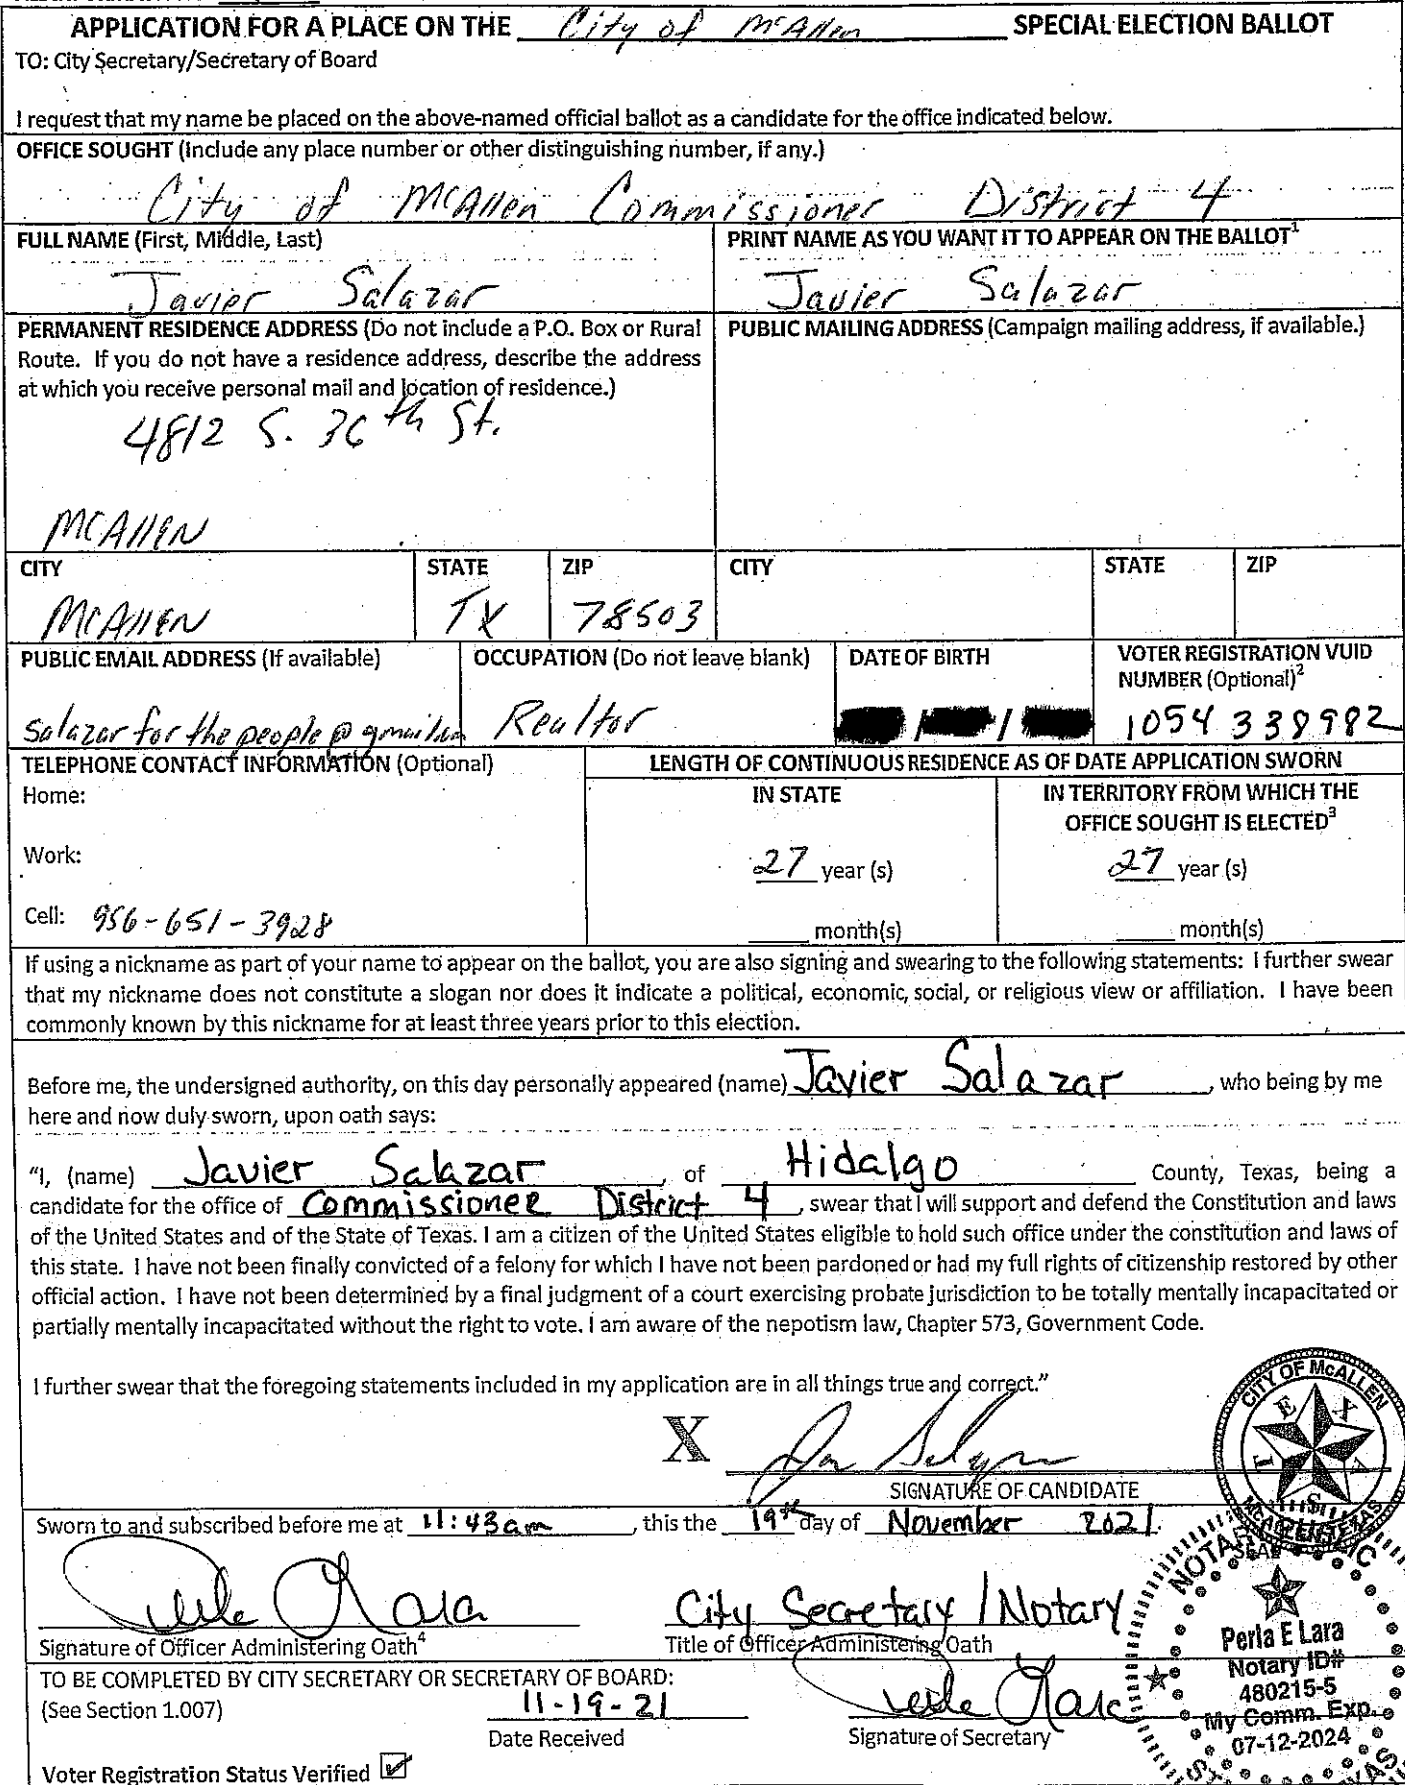 APPLICATION FOR A PLACE ON THE City of McAllen SPECIAL ELECTION BALLOT
TO: City Secretary/Secretary of Board
I request that my name be placed on the above-named official ballot as a candidate for the office indicated below.
OFFICE SOUGHT (Include any place number or other distinguishing number, if any.)
City of McAllen Commissioner District 4
FULL NAME (First, Middle, Last)
Javier Salazar
PRINT NAME AS YOU WANT IT TO APPEAR ON THE BALLOT1
Javier Salazar
PERMANENT RESIDENCE ADDRESS (Do not include a P.O. Box or Rural
Route. If you do not have a residence address, describe the address
at which you receive personal mail and location of residence.)
4812 S. 36th St.
McAllen
PUBLIC MAILING ADDRESS (Campaign mailing address, if available.)
CITY
McAllen
STATE
TX
ZIP
78503
CITY
STATE
ZIP
PUBLIC EMAIL ADDRESS (If available)
Salazar for the people@gmail.com
OCCUPATION (Do not leave blank)
Realtor
DATE OF BIRTH
/ /
VOTER REGISTRATION VUID
NUMBER (Optional)2
1054338982
TELEPHONE CONTACT INFORMATION (Optional)
Home:
Work:
Cell: 956-651-3928
LENGTH OF CONTINUOUS RESIDENCE AS OF DATE APPLICATION SWORN
IN STATE
27 year (s)
month(s)
IN TERRITORY FROM WHICH THE
OFFICE SOUGHT IS ELECTED3
27 year (s)
month(s)
If using a nickname as part of your name to appear on the ballot, you are also signing and swearing to the following statements: I further swear
that my nickname does not constitute a slogan nor does it indicate a political, economic, social, or religious view or affiliation. I have been
commonly known by this nickname for at least three years prior to this election.
Before me, the undersigned authority, on this day personally appeared (name) Javier Salazar, who being by me
here and now duly sworn, upon oath says:
"I, (name) Javier Salazar, of Hidalgo County, Texas, being a
candidate for the office of Commissioner District 4, swear that I will support and defend the Constitution and laws
of the United States and of the State of Texas. I am a citizen of the United States eligible to hold such office under the constitution and laws of
this state. I have not been finally convicted of a felony for which I have not been pardoned or had my full rights of citizenship restored by other
official action. I have not been determined by a final judgment of a court exercising probate jurisdiction to be totally mentally incapacitated or
partially mentally incapacitated without the right to vote. I am aware of the nepotism law, Chapter 573, Government Code.
I further swear that the foregoing statements included in my application are in all things true and correct."
X
SIGNATURE OF CANDIDATE
CITY OF McALLEN
TEXAS
McALLEN TEXAS
SEAL
Sworn to and subscribed before me at 11:43am, this the 19th day of November 2021.
City Secretary / Notary
Signature of Officer Administering Oath4
Title of Officer Administering Oath
TO BE COMPLETED BY CITY SECRETARY OR SECRETARY OF BOARD:
(See Section 1.007)
11-19-21
Date Received
Signature of Secretary
Voter Registration Status Verified
Perla E Lara
Notary ID#
480215-5
My Comm. Exp.
07-12-2024